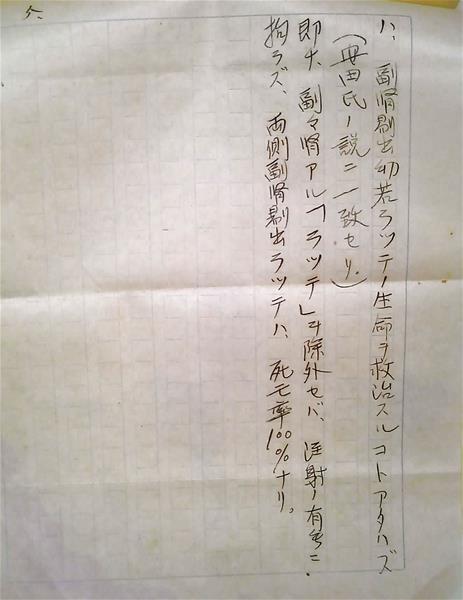 ハ、副腎剔出幼若ラツテノ生命ヲ救治スルコトアタハズ
(安田氏ノ説ニ一致セリ。)
即チ、副々腎アル「ラツテ」ヲ除外セバ、注射ノ有無ニ
拘ラズ、両側副腎剔出ラツテハ、死亡率100%ナリ。